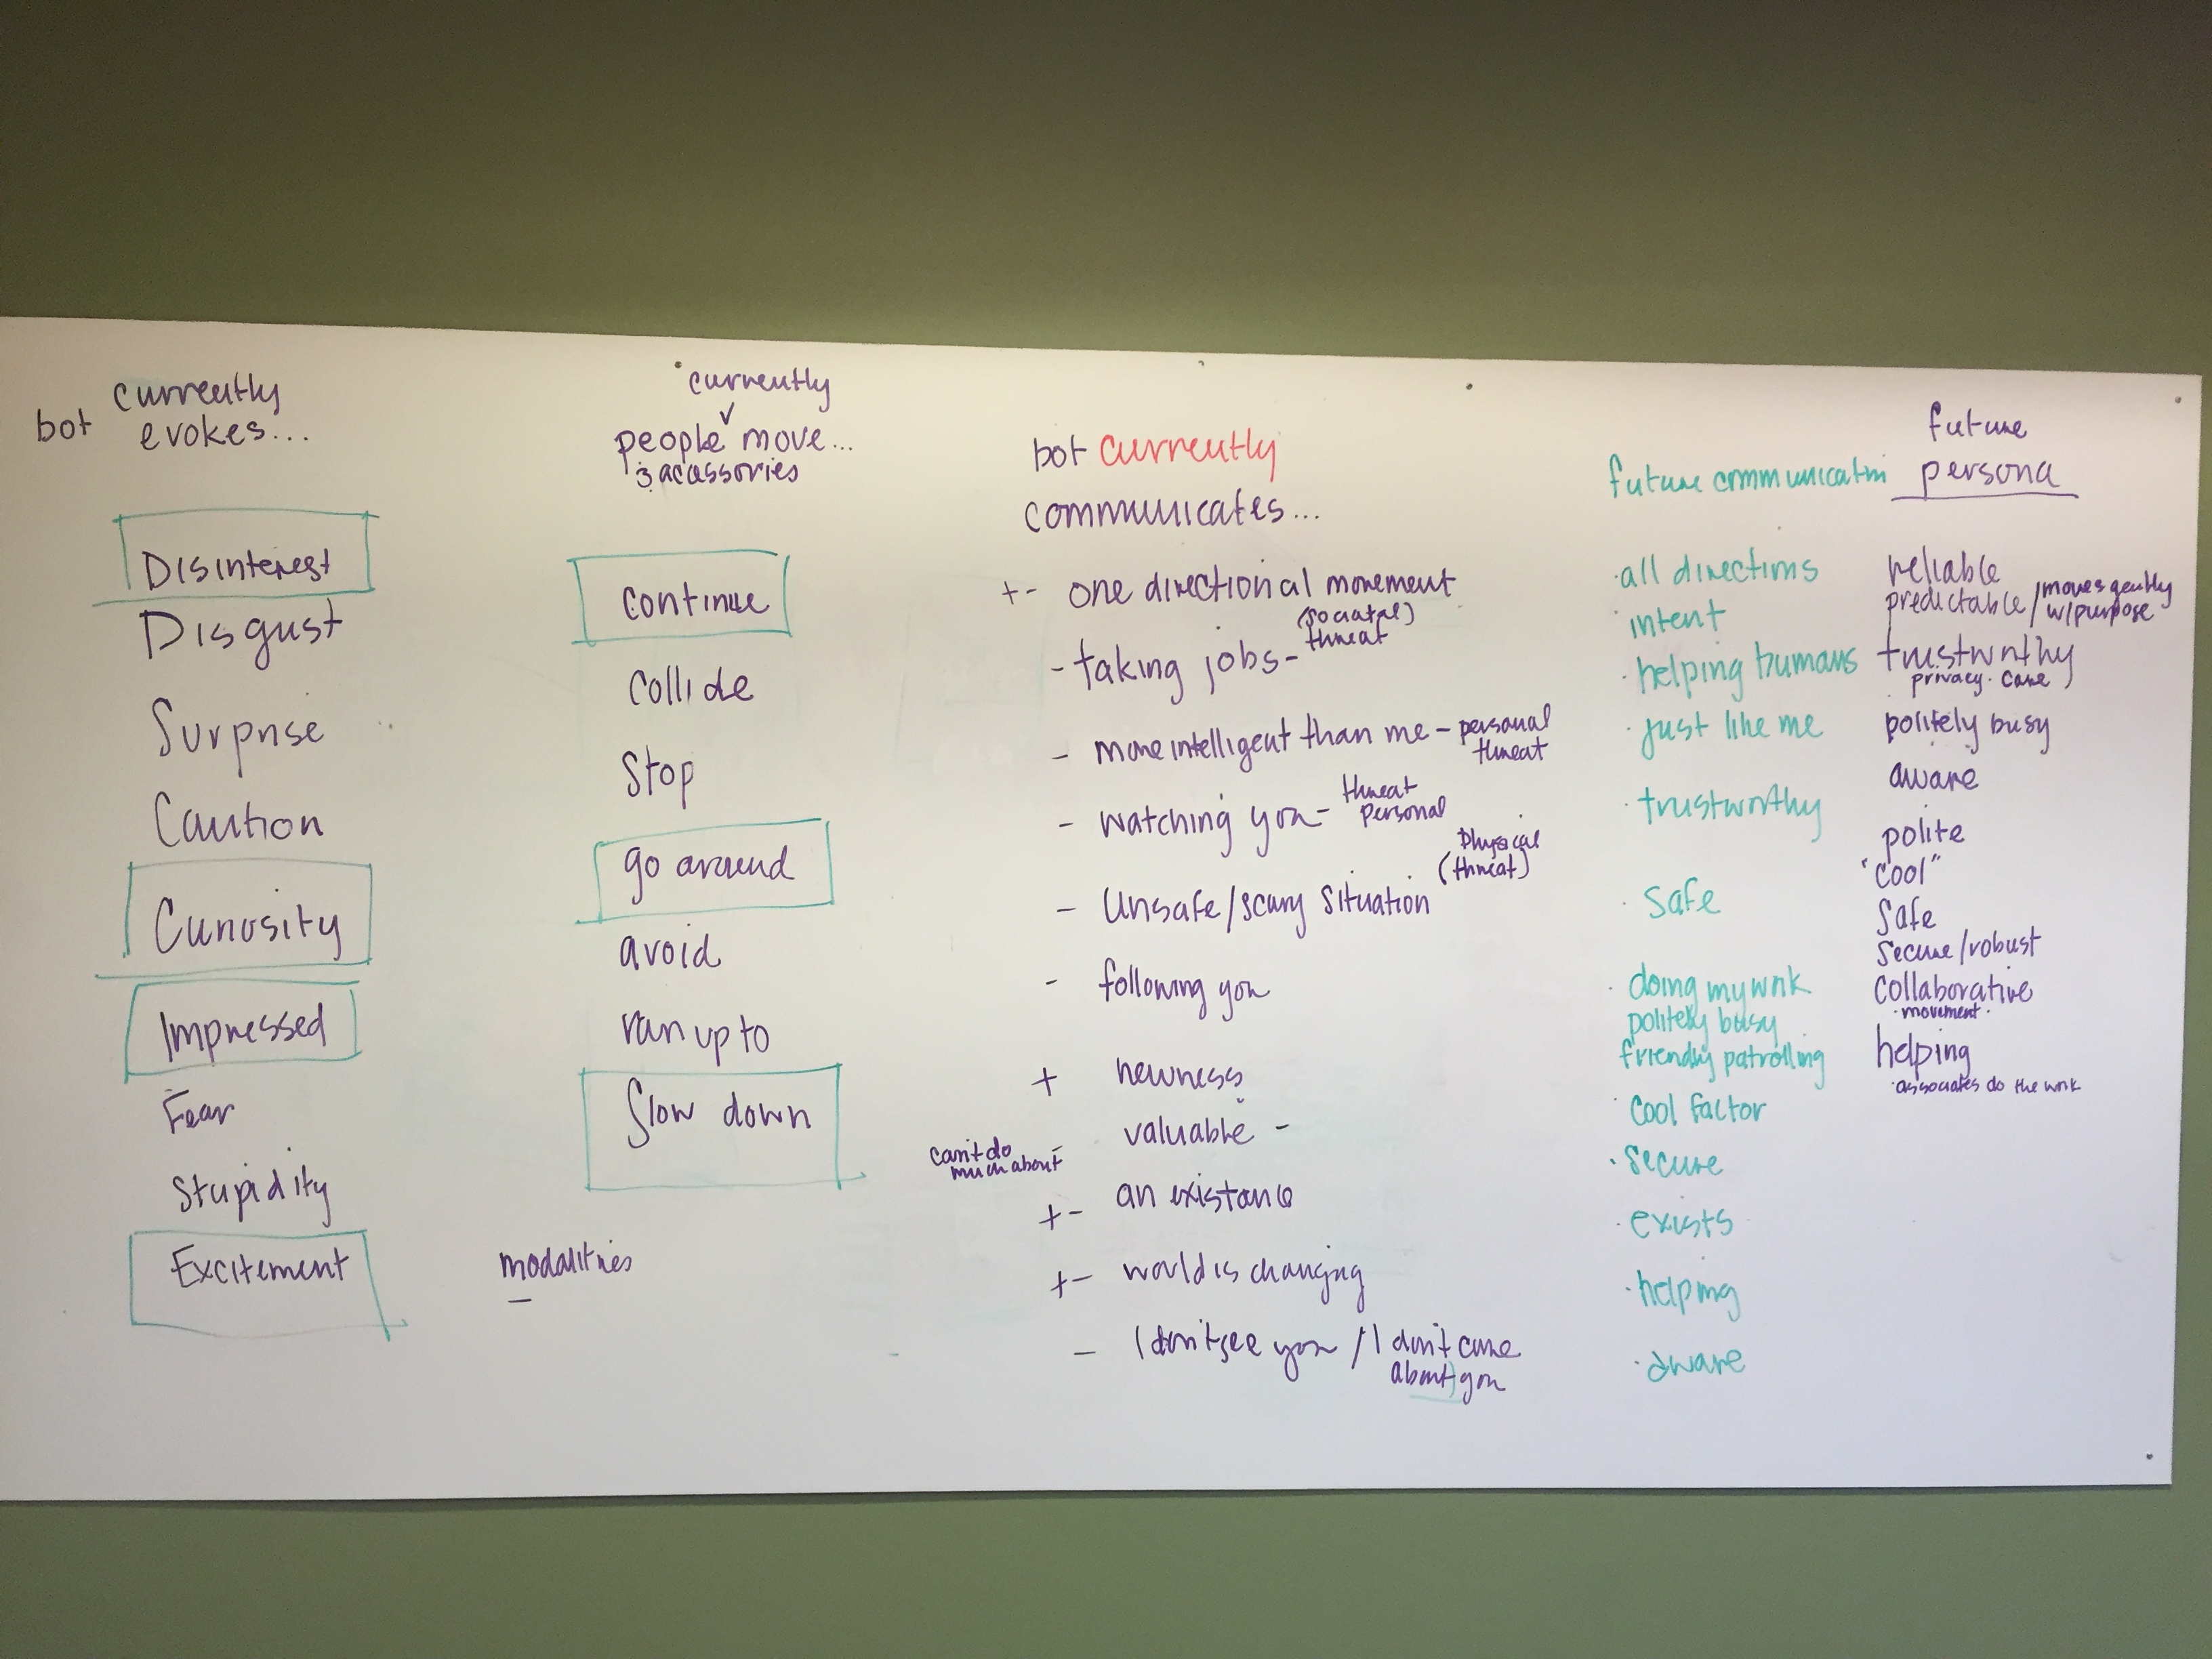 currently
bot evokes...
Disinterest
Disgust
Surprise
Caution
Curiosity
Impressed
Fear
Stupidity
Excitement
currently
people move...
& acassories
continue
collide
Stop
go around
avoid
ran up to
Slow down
modalities
–
bot currently
communicates...
+- one directional movement
(sociatal)
- taking jobs- threat
- more intelligent than me - personal
threat
- watching you- threat
personal
physical
(threat)
- Unsafe/scary situation
- following you
+ newness
valuable -
can't do
much about -
+- an existance
+- world is changing
- I don't see you / I don't care
about you
future communication
· all directions
intent
· helping humans
· just like me
· trustworthy
· safe
· doing my work
politely busy
friendly patrolling
· cool factor
· secure
· exists
· helping
· aware
future
persona
reliable
predictable / moves gently
w/purpose
trustworthy
privacy · care
politely busy
aware
polite
"cool"
safe
secure/robust
collaborative
· movement ·
helping
· associates do the work